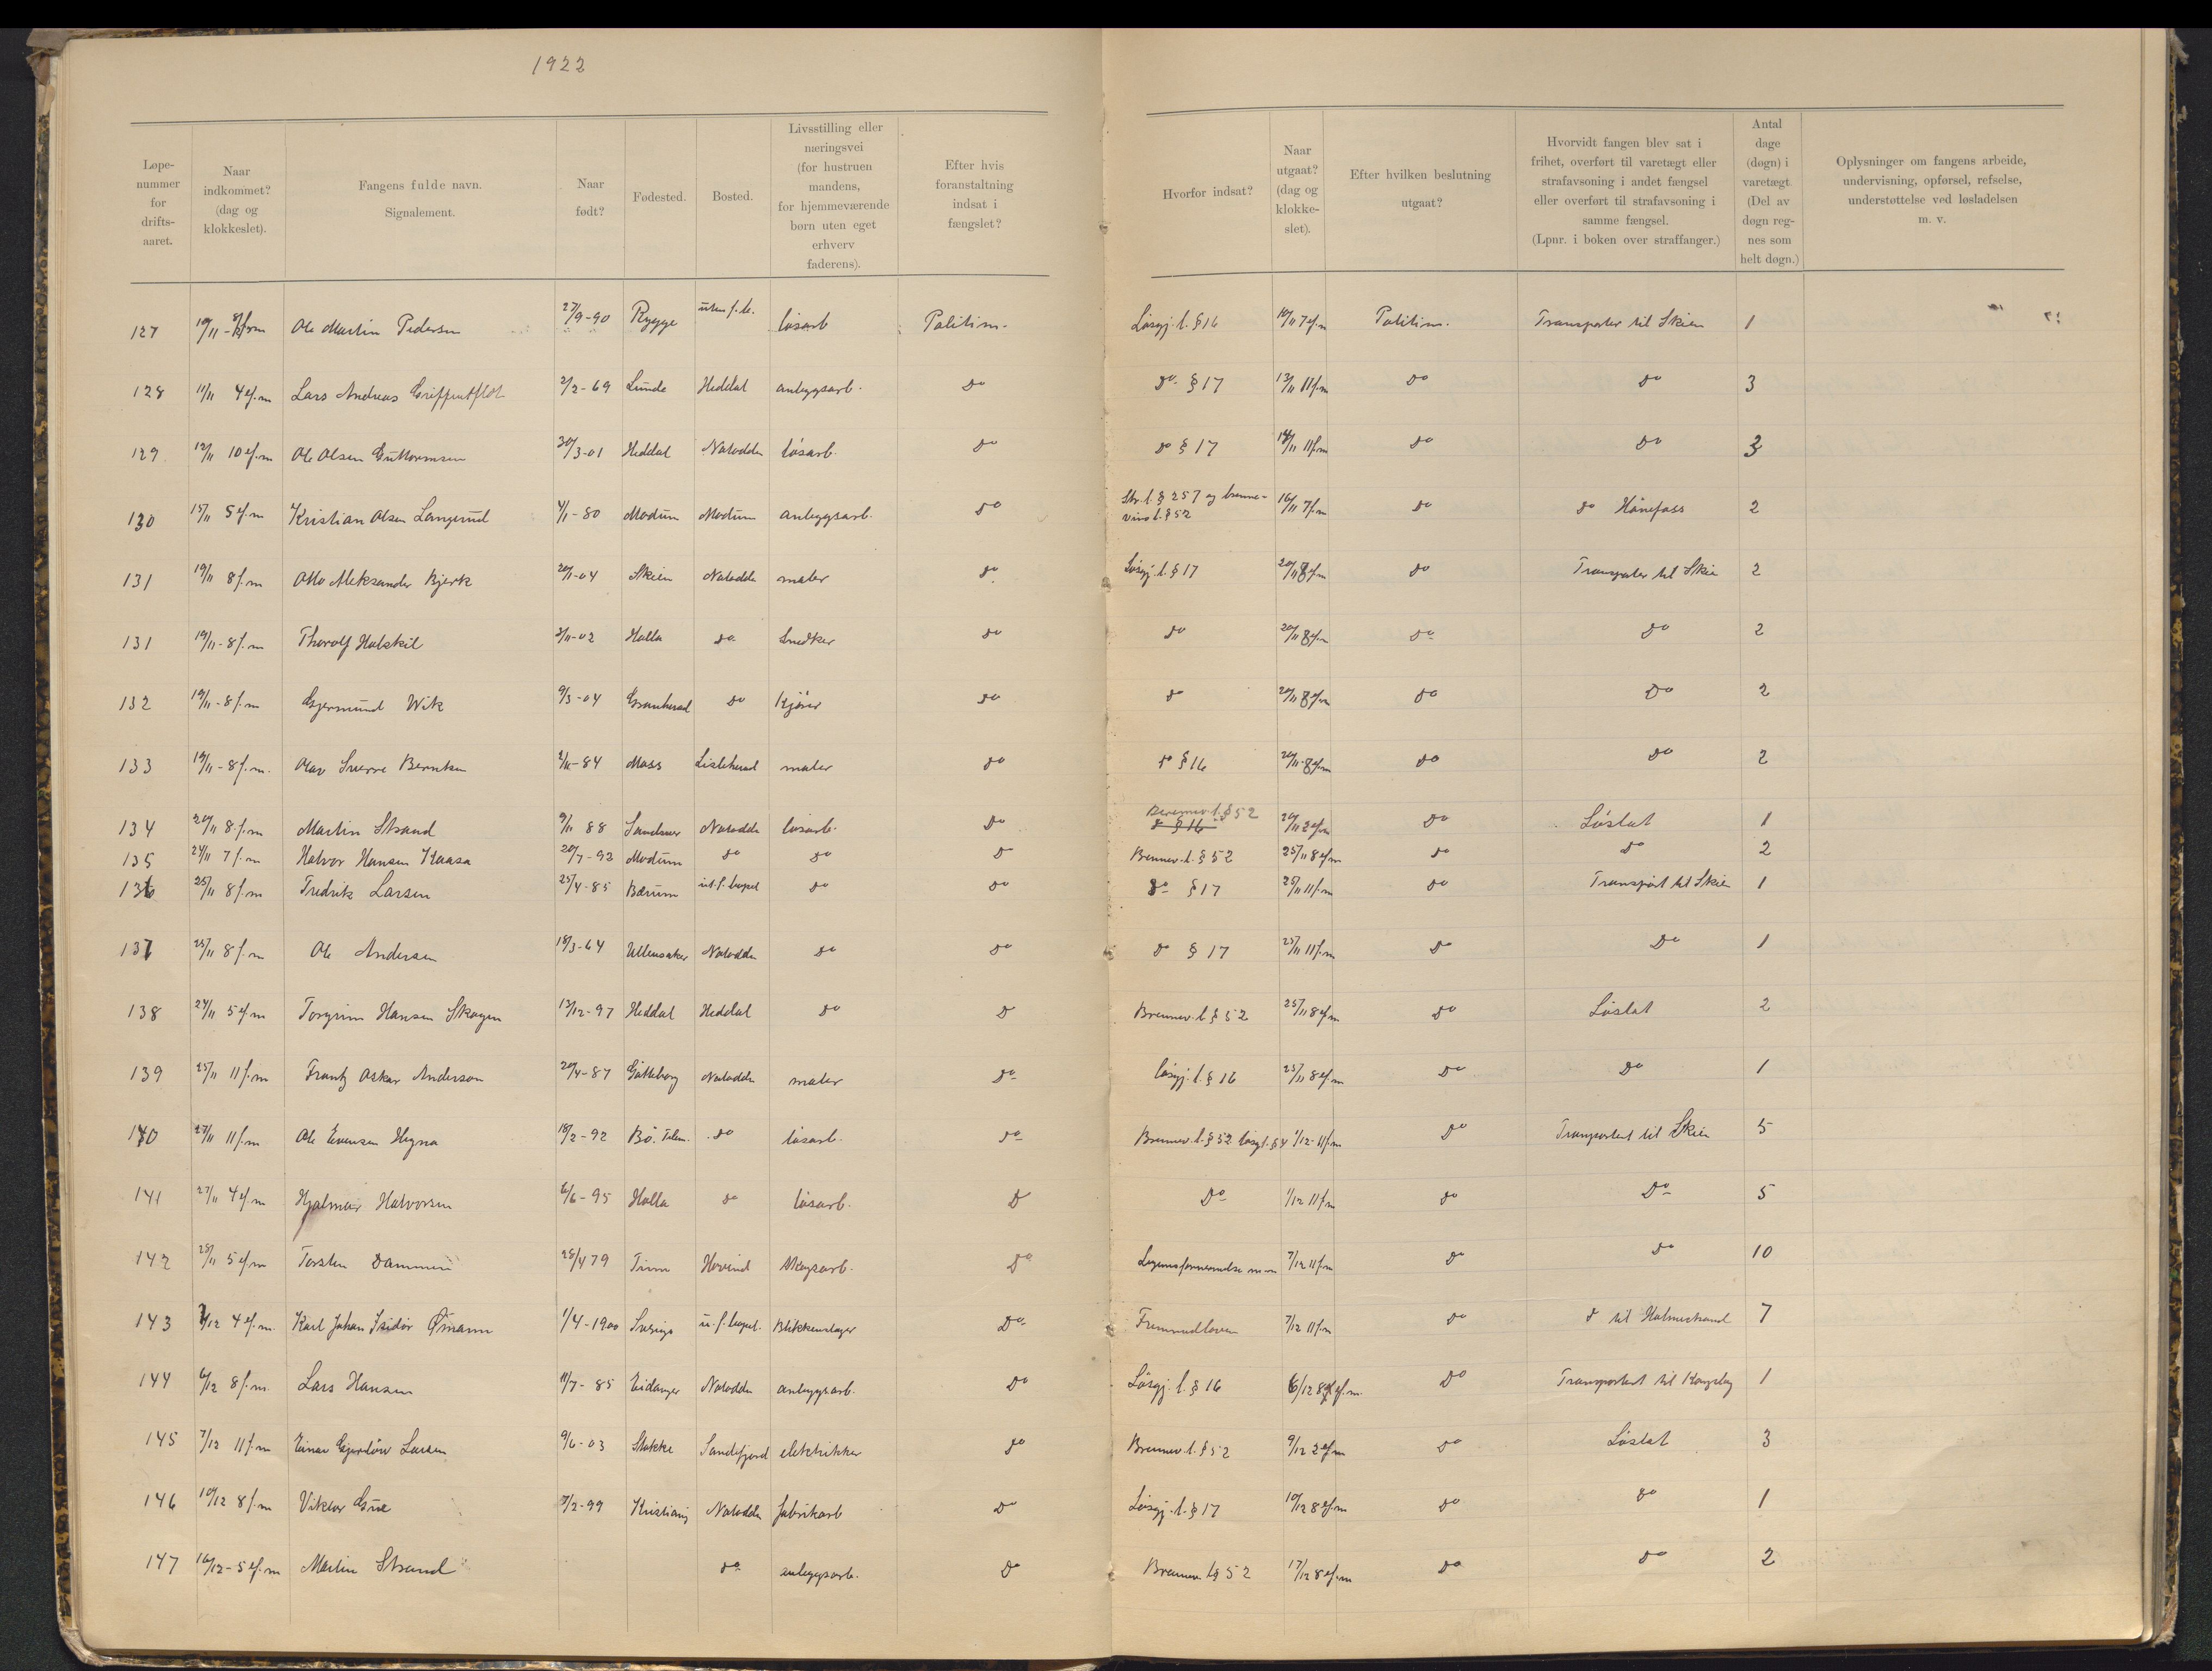 1922
Løpe-nummer for drifts-aaret.
Naar indkommet? (dag og klokkeslet).
Fangens fulde navn. Signalement.
Naar født?
Fødested.
Bosted.
Livsstilling eller næringsvei (for hustruen mandens, for hjemmeværende børn uten eget erhverv faderens).
Efter hvis foranstaltning indsat i fængslet?
Hvorfor indsat?
Naar utgaat? (dag og klokke-slet).
Efter hvilken beslutning utgaat?
Hvorvidt fangen blev sat i frihet, overført til varetægt eller strafavsoning i andet fængsel eller overført til strafavsoning i samme fængsel. (Lpnr. i boken over straffanger.)
Antal dage (døgn) i varetægt. (Del av døgn reg-nes som helt døgn.)
Oplysninger om fangens arbeide, undervisning, opførsel, refselse, understøttelse ved løsladelsen m. v.
127 Ole Martin Pedersen 27/9-90 Rygge løsarb Politim. Løsgj. l. §16 10/11 7 ef.m Politim. Transporter til Skien 1
128 11/11 4 ef.m Lars Andreas 2/2-69 Lunde Heddal anleggsarb. do do §17 13/11 11 f.m do do 3
129 12/11 10 ef.m Ole Olsen Guttormsen 30/3-01 Heddal Notodden løsarb. do do §17 14/11 11 f.m do do 3
130 15/11 5 ef.m Kristian Olsen Langerud 4/1-80 Modum Modum anleggsarb. do Str. l. § 257 og brenne-vins l. § 52 16/11 7 f.m do do Hønefoss 2
131 19/11 8 f.m Otto Aleksander Bjerk 20/11-04 Skien Notodden maler do Løsgj. l. §17 20/11 8 ef.m do Transporter til Skien 2
131 19/11-8 f.m Thorolf Halskil 2/11-02 Holla do Snedker do do 20/11 8 ef.m do do 2
132 19/11-8 f.m Gjermund Wik 9/3-04 Gransherad do Kjører do do 20/11 8 ef.m do Do 2
133 19/11-8 f.m. Olav Sverre Berntsen -84 Moss Lisleherad maler do do §16 20/11-8 ef.m do do 2
134 20/11 8 f.m Martin Strand 9/11 88 Notodden løsarb. Do do §16 Brennev. l. §52 20/11 2 ef.m Do Løslat 1
135 24/11 7 f.m Halvor Hansen Kaasa 20/7-92 Modum do do Do Brennev. l. § 52 25/11 8 ef.m do do 2
136 25/11 8 f.m Fredrik Larsen 25/4-85 Bærum ut. f. bopel do do do §17 25/11 11 f.m do Transport til Skien 1
137 25/11 8 f.m Ole Andersen 18/3-64 Ullensaker Notodden do do do § 17 25/11 11 f.m Do Do 1
138 24/11 5 ef.m Torgrim Hansen Skogen 13/12-97 Heddal Heddal do Do Brennev. l. § 52 25/11 8 ef.m do Løslat 2
139 25/11 11 f.m Frantz Oskar Anderson 20/4-87 Gøtteborg Notodden maler do løsgj. l. § 16 25/11 8 ef.m do do 1
140 27/11 11 f.m Ole Evensen Hegna 18/2-92 Bø. Telem. do løsarb. do Brennev. l. § 52 løsgj. l. § 4 1/12-11 f.m Do Transportert til Skien 5
141 27/11 4 ef.m Hjalmar Halvorsen 6/6-95 Holla do løsarb. Do Do 1/12 11 f.m do Do 5
142 28/11 5 ef.m Torsten Dammen 28/4 79 Tinn Hovind skogsarb. Do Legemsfornermelse m.m 7/12 11 f.m do do 10
143 1/12 4 ef.m. Karl Johan Isidor Øman 1/4-1900 Sverige u. f. bopel. Blikkenslager Do Fremmedloven 7/12 11 f.m do do til Holmestrand 7
144 6/12 8 f.m. Lars Hansen 11/7-85 Eidanger Notodden anleggsarb. Do Løsgj. l. § 16 6/12 8 ef.m. Do Transportert til Kongsberg 1
145 7/12 11 f.m Einar Larsen 9/6-03 Stokke Sandefjord elektrikker do Brennev. l. § 52 9/12 2 ef.m do Løslat 3
146 10/12 8 f.m Viktor 3/2-99 Kristiania Notodden fabrikarb Do Løsgj. l. § 17 10/12 8 ef.m do do 1
147 16/12-5 ef.m Martin Strand do anleggsarb. Do Brennev. l § 52 17/12 8 ef.m do do 2